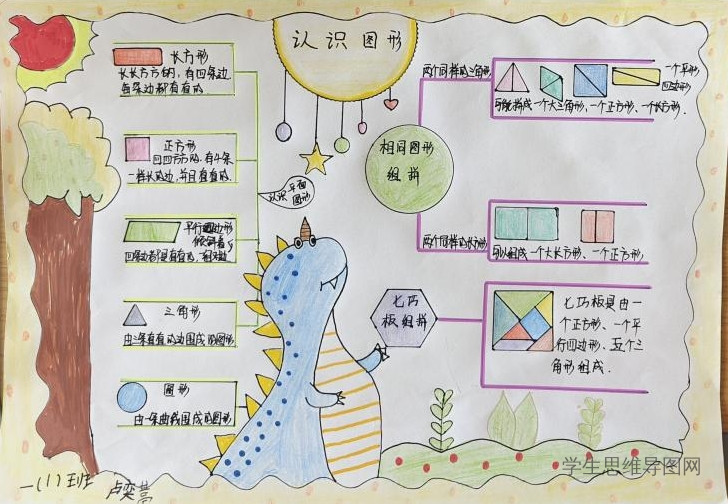 认识图形
长方形
长长方方的,有四条边
每条边都有直的
正方形
四四方方的,有4条
一样长的边,并且直直的
平行四边形
四条边都是直直的,
三角形
由三条直直的边围成的图形
圆形
由一条曲线围成的图形
认识平面
图形
相同图形
组拼
两个同样的三角形
一个平形
四边形
可能拼成一个大三角形,一个正方形、一个长方形.
两个同样的长方形
可以组成一个大长方形、一个正方形,
七巧
板组拼
七巧板是由一
个正方形、一个平
行四边形、五个三
角形组成.
一(1)班
学生思维导图网